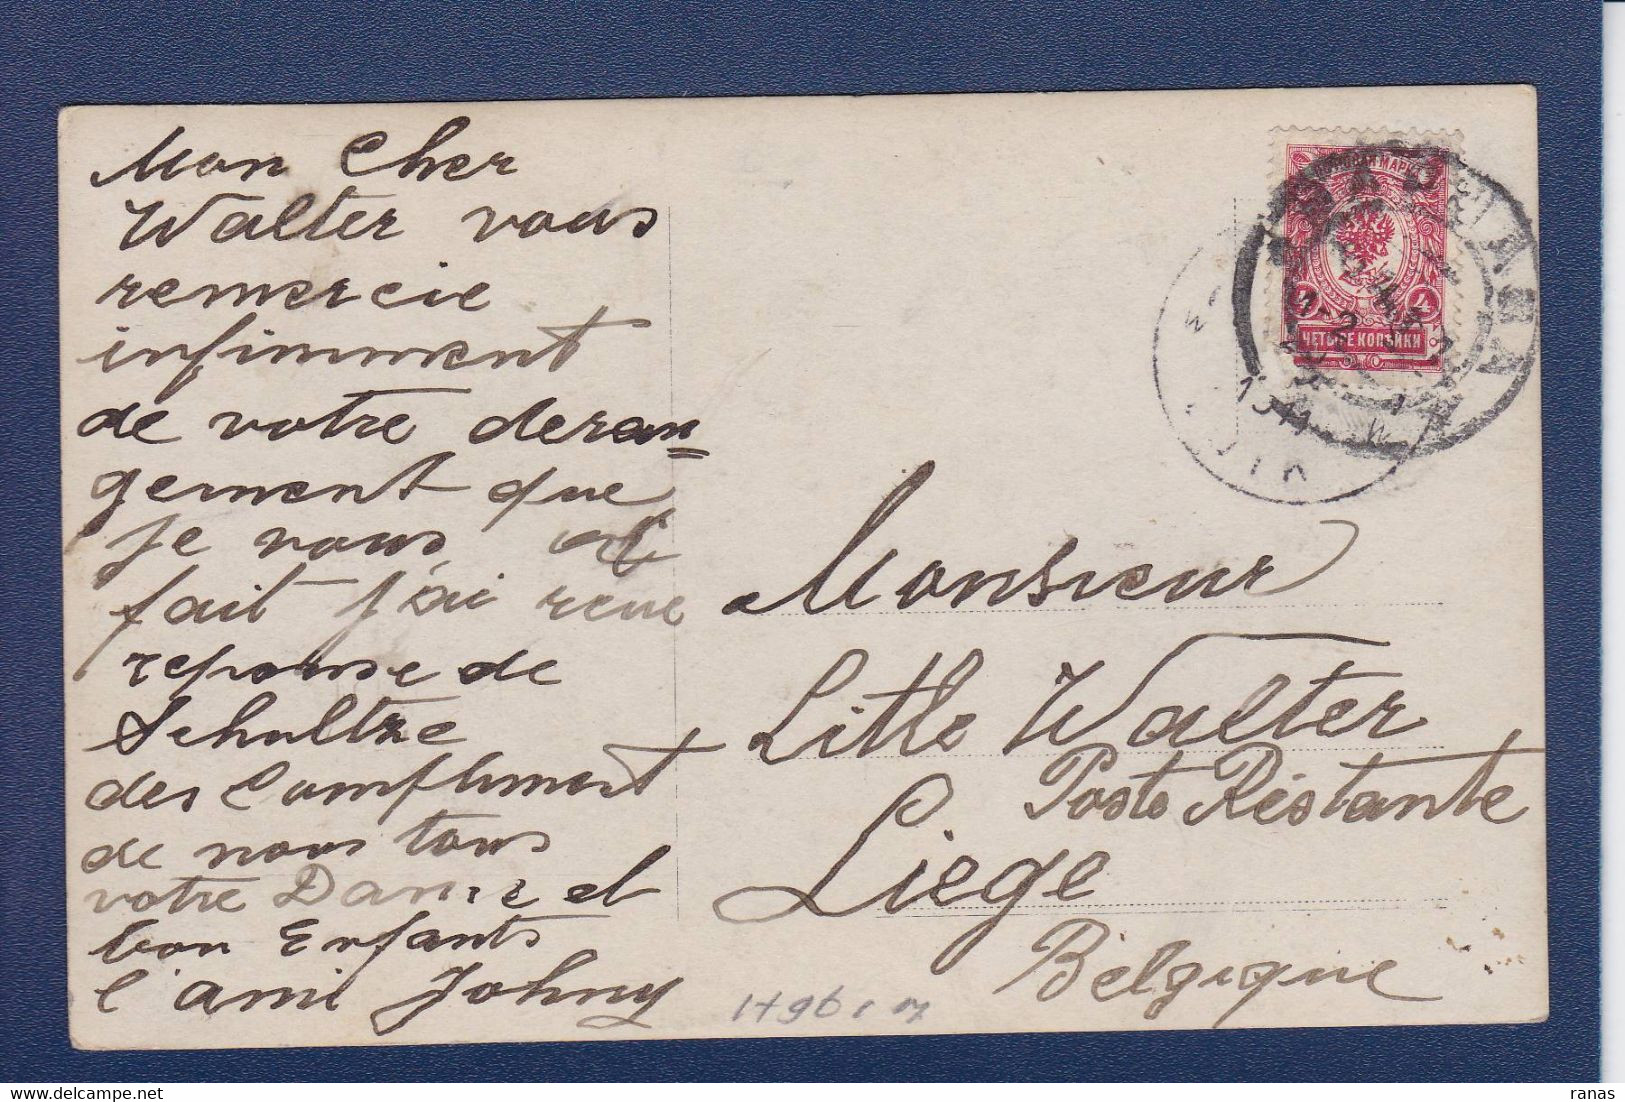 Mon Cher
Walter vous
remercie
infimment
de votre deran=
gement que
je vous
fait j'ai reçue
reponse de
Schultze
des Compliment
de nous tous
votre Dame et
bon Enfants
l'ami Johny
ПОЧТОВАЯ МАРКА
4 4
ЧЕТЫРЕ КОПѢЙКИ
ВАРШАВА
Monsieur
Little Walter
Poste Réstante
Liege
Belgique
ranas